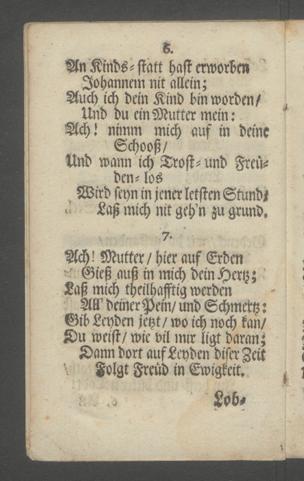 6.
An Kinds-statt hast erworben
Johannem nit allein;
Auch ich dein Kind bin worden/
Und du ein Mutter mein:
Ach! nimm mich auf in deine
Schooß/
Und wann ich Trost- und Freü-
den-los
Wird seyn in jener letsten Stund;
Laß mich nit geh'n zu grund.
7.
Ach! Mutter/ hier auf Erden
Gieß auß in mich dein Hertz;
Laß mich theilhafftig werden
All deiner Pein/ und Schmertz:
Gib Leyden jetzt/ wo ich noch kan/
Du weist/ wie vil mir ligt daran;
Dann dort auf Leyden diser Zeit
Folgt Freüd in Ewigkeit.
Lob-